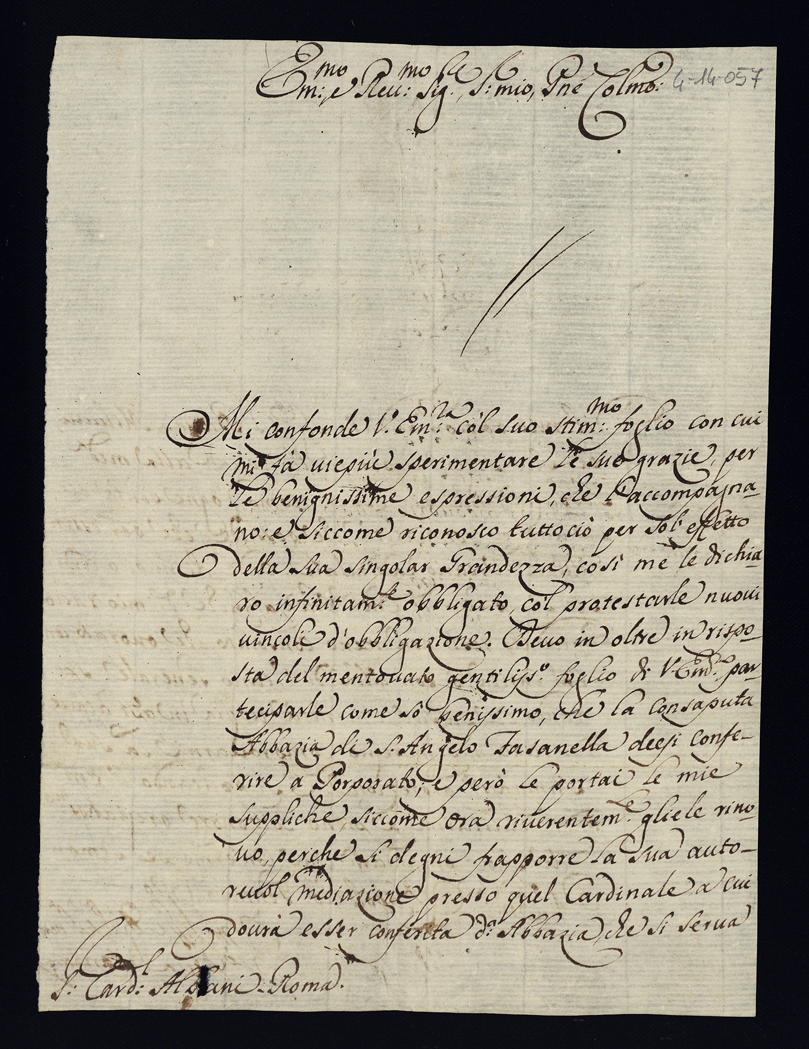 Em:mo e Reu:mo Sig.re, S: mio, Pne Colmo:
4-14-057
Mi confonde V.a Em:za col suo stim:mo foglio con cui
mi fà uiepiù sperimentare le sue grazie, per
le benignissime espressioni, che l'accompagna-
no: e siccome riconosco tuttociò per sol' effetto
della sua singolar Grandezza, così me le dichia-
ro infinitam:te obbligato, col protestarle nuoui
uincoli d'obbligazione. Deuo in oltre in rispo-
sta del mentouato gentiliss.o foglio di V. Em.za par-
teciparle come sò benissimo, che la consaputa
Abbazia di S. Angelo Fasanella deesi confe-
rire a Porporato, e però le portai le mie
suppliche, siccome ora riuerentem.te gliele rino-
uo, perche si degni frapporre la sua auto-
reuol mediazione presso quel Cardinale a cui
dourà esser conferita d.a Abbazia, che si serua
S: Card:l Albani - Roma.